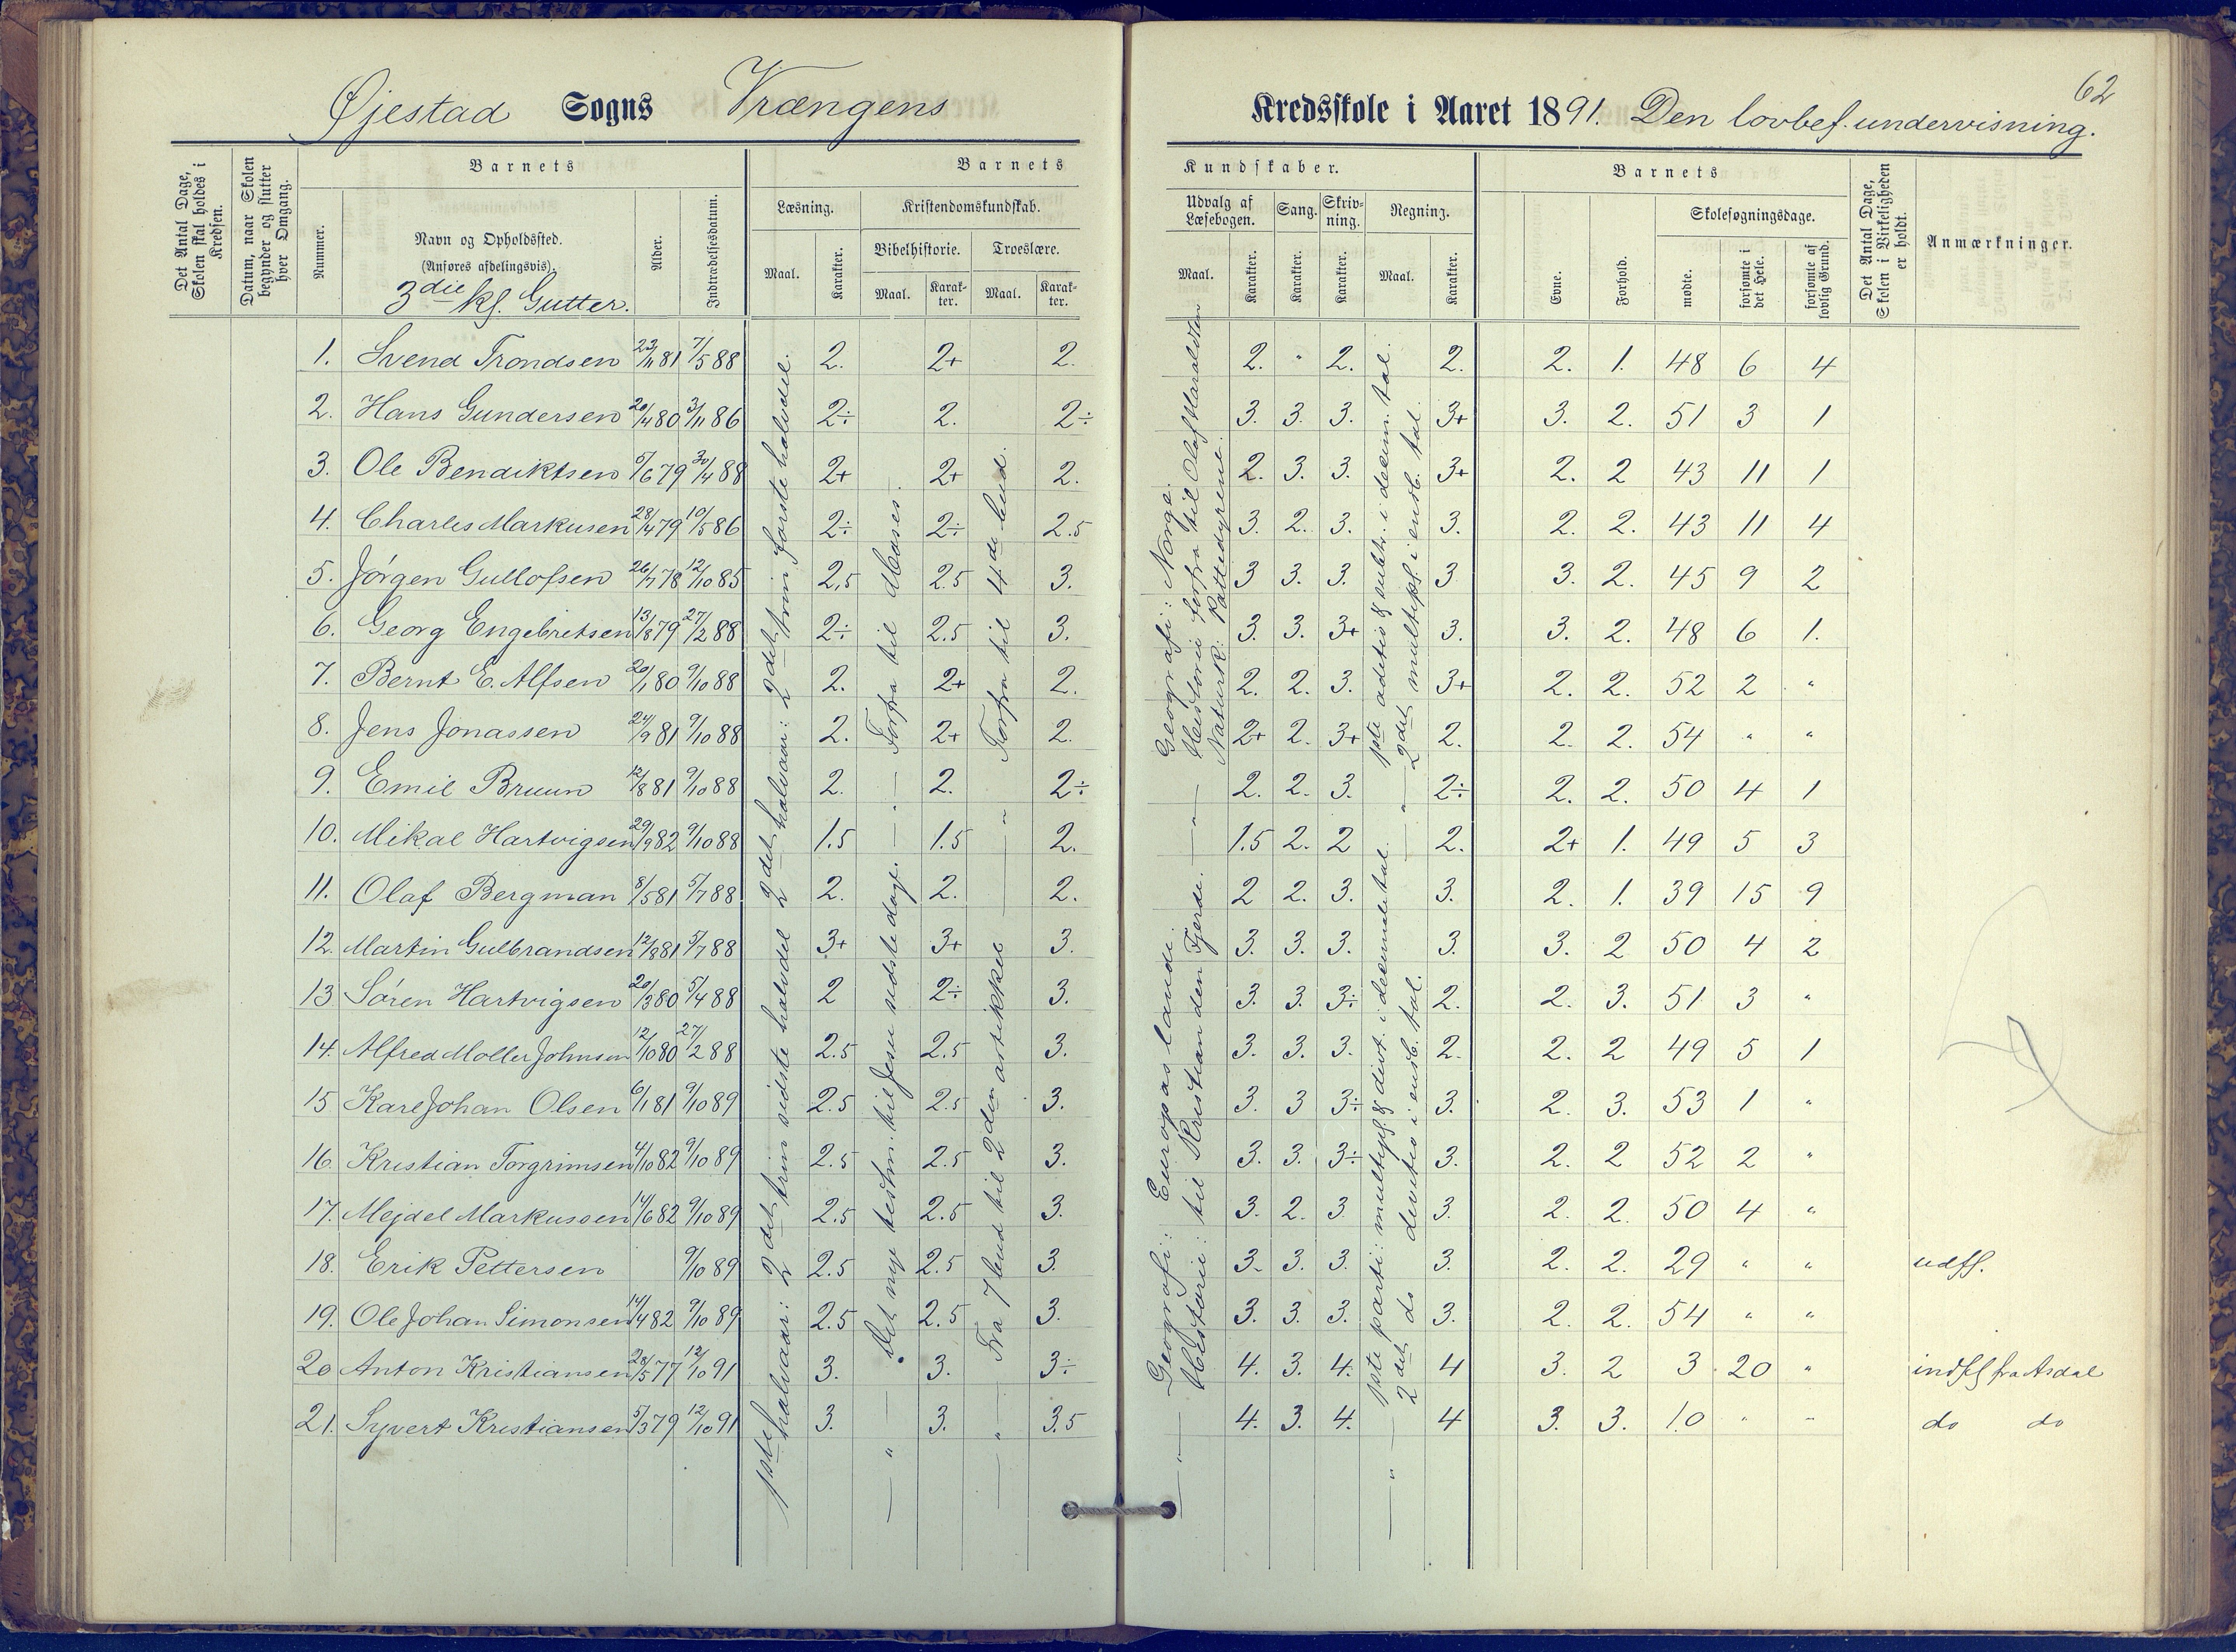 62
Øjestad Sogns Vrængens Kredsskole i Aaret 1891. Den lovbef. undervisning.
Det Antal Dage, Skolen skal holdes i Kredsen.
Datum, naar Skolen begynder og slutter hver Omgang.
Barnets
Nummer.
Navn og Opholdssted.
(Anføres afdelingsvis).
3die kl. Gutter.
Alder.
Indtrædelsesdatum.
Barnets Kundskaber.
Læsning.
Maal.
Karakter.
Kristendomskundskab.
Bibelhistorie.
Maal.
Karakter.
Troeslære.
Maal.
Karakter.
Udvalg af Læsebogen.
Maal.
Karakter.
Sang.
Karakter.
Skrivning.
Karakter.
Regning.
Maal.
Karakter.
Barnets
Evne.
Forhold.
Skolesøgningsdage.
mødte.
forsømte i det Hele.
forsømte af lovlig Grund.
Det Antal Dage, Skolen i Virkeligheden er holdt.
Anmærkninger.
1. Svend Trondsen 23/11 81 7/5 88 2. 2+ 2. 2. " 2. 2. 2. 1. 48 6 4
2. Hans Gundersen 20/4 80 3/11 86 2÷ 2. 2÷ 3. 3. 3. 3+ 3. 2. 51 3 1
3. Ole Bendiktsen 5/6 79 30/4 88 2+ 2+ 2. 2. 3. 3. 3+ 2. 2 43 11 1
4. Charles Markusen 28/4 79 10/5 86 2÷ 2÷ 2.5 3. 2. 3. 3. 2. 2. 43 11 4
5. Jörgen Gullofsen 26/7 78 12/10 85 2,5 2.5 3. 3 3. 3. 3 3. 2. 45 9 2
6. Georg Engebretsen 13/8 79 27/2 88 2÷ 2.5 3. 3. 3. 3+ 3. 3. 2. 48 6 1.
7. Bernt E. Alfsen 20/1 80 9/10 88 2. 2+ 2. 2. 2. 3. 3+ 2. 2. 52 2 "
8. Jens Jonassen 24/9 81 9/10 88 2. 2+ 2. 2+ 2. 3+ 2. 2. 2. 54 " "
9. Emil Bruun 12/8 81 9/10 88 2. 2. 2÷ 2. 2. 3. 2÷ 2. 2. 50 4 1
10. Mikal Hartvigsen 29/9 82 9/10 88 1.5 1.5 2. 1.5 2. 2 2. 2+ 1. 49 5 3
11. Olaf Bergman 8/5 81 5/7 88 2. 2. 2. 2 2. 3. 3. 2. 1. 39 15 9
12. Martin Gulbrandsen 12/8 81 5/7 88 3+ 3+ 3. 3. 3. 3. 3. 3. 2 50 4 2
13. Sören Hartvigsen 20/3 80 5/4 88 2 2÷ 3. 3. 3. 3÷ 2. 2. 3. 51 3 "
14. Alfred Moller Johnsen 12/10 80 27/2 88 2.5 2.5 3. 3. 3. 3. 2. 2. 2 49 5 1
15 Karl Johan Olsen 6/1 81 9/10 89 2.5 2.5 3. 3. 3 3÷ 3. 2. 3. 53 1 "
16. Kristian Torgrimsen 4/10 82 9/10 89 2.5 2.5 3. 3. 3. 3÷ 3. 2. 2 52 2 "
17. Mejdel Markussen 14/6 82 9/10 89 2.5 2.5 3. 3. 2. 3 3. 2. 2. 50 4 "
18. Erik Pettersen 9/10 89 2.5 2.5 3. 3. 3. 3. 3. 2. 2. 29 " " udfl.
19. Ole Johan Simonsen 14/4 82 9/10 89 2.5 2.5 3. 3. 3. 3. 3. 2. 2. 54 " "
20 Anton Kristiansen 28/5 77 12/10 91 3. 3. 3÷ 4. 3. 4. 4 3. 2 3 20 " indfl fra Asdal
21. Syvert Kristiansen 5/3 79 12/10 91 3. 3. 3.5 4. 3. 4. 4 3. 3. 10 " " do do
1ste halvaar: 2det trin sidste halvdel
2det halvaar: 2det trin første halvdel.
Det nye testm. til Jesu sidste dage.
— " — Forfra til Moses.
Fra 7 bud til 2den artikkel
— " — Forfra til 4de bud.
Geografi: Europas lande.
Historie: til Kristian den Fjerde.
— " — Geografi: Norge.
Historie forfra til Olaf Haraldsen
Naturk: Pattedyrene.
1ste parti: multipl. & divi. i decimaltal.
2det do devitio i ensb. tal.
— " — 1ste adetio & subtr. i decim. tal.
— " — 2det multipl. i ensb. tal.